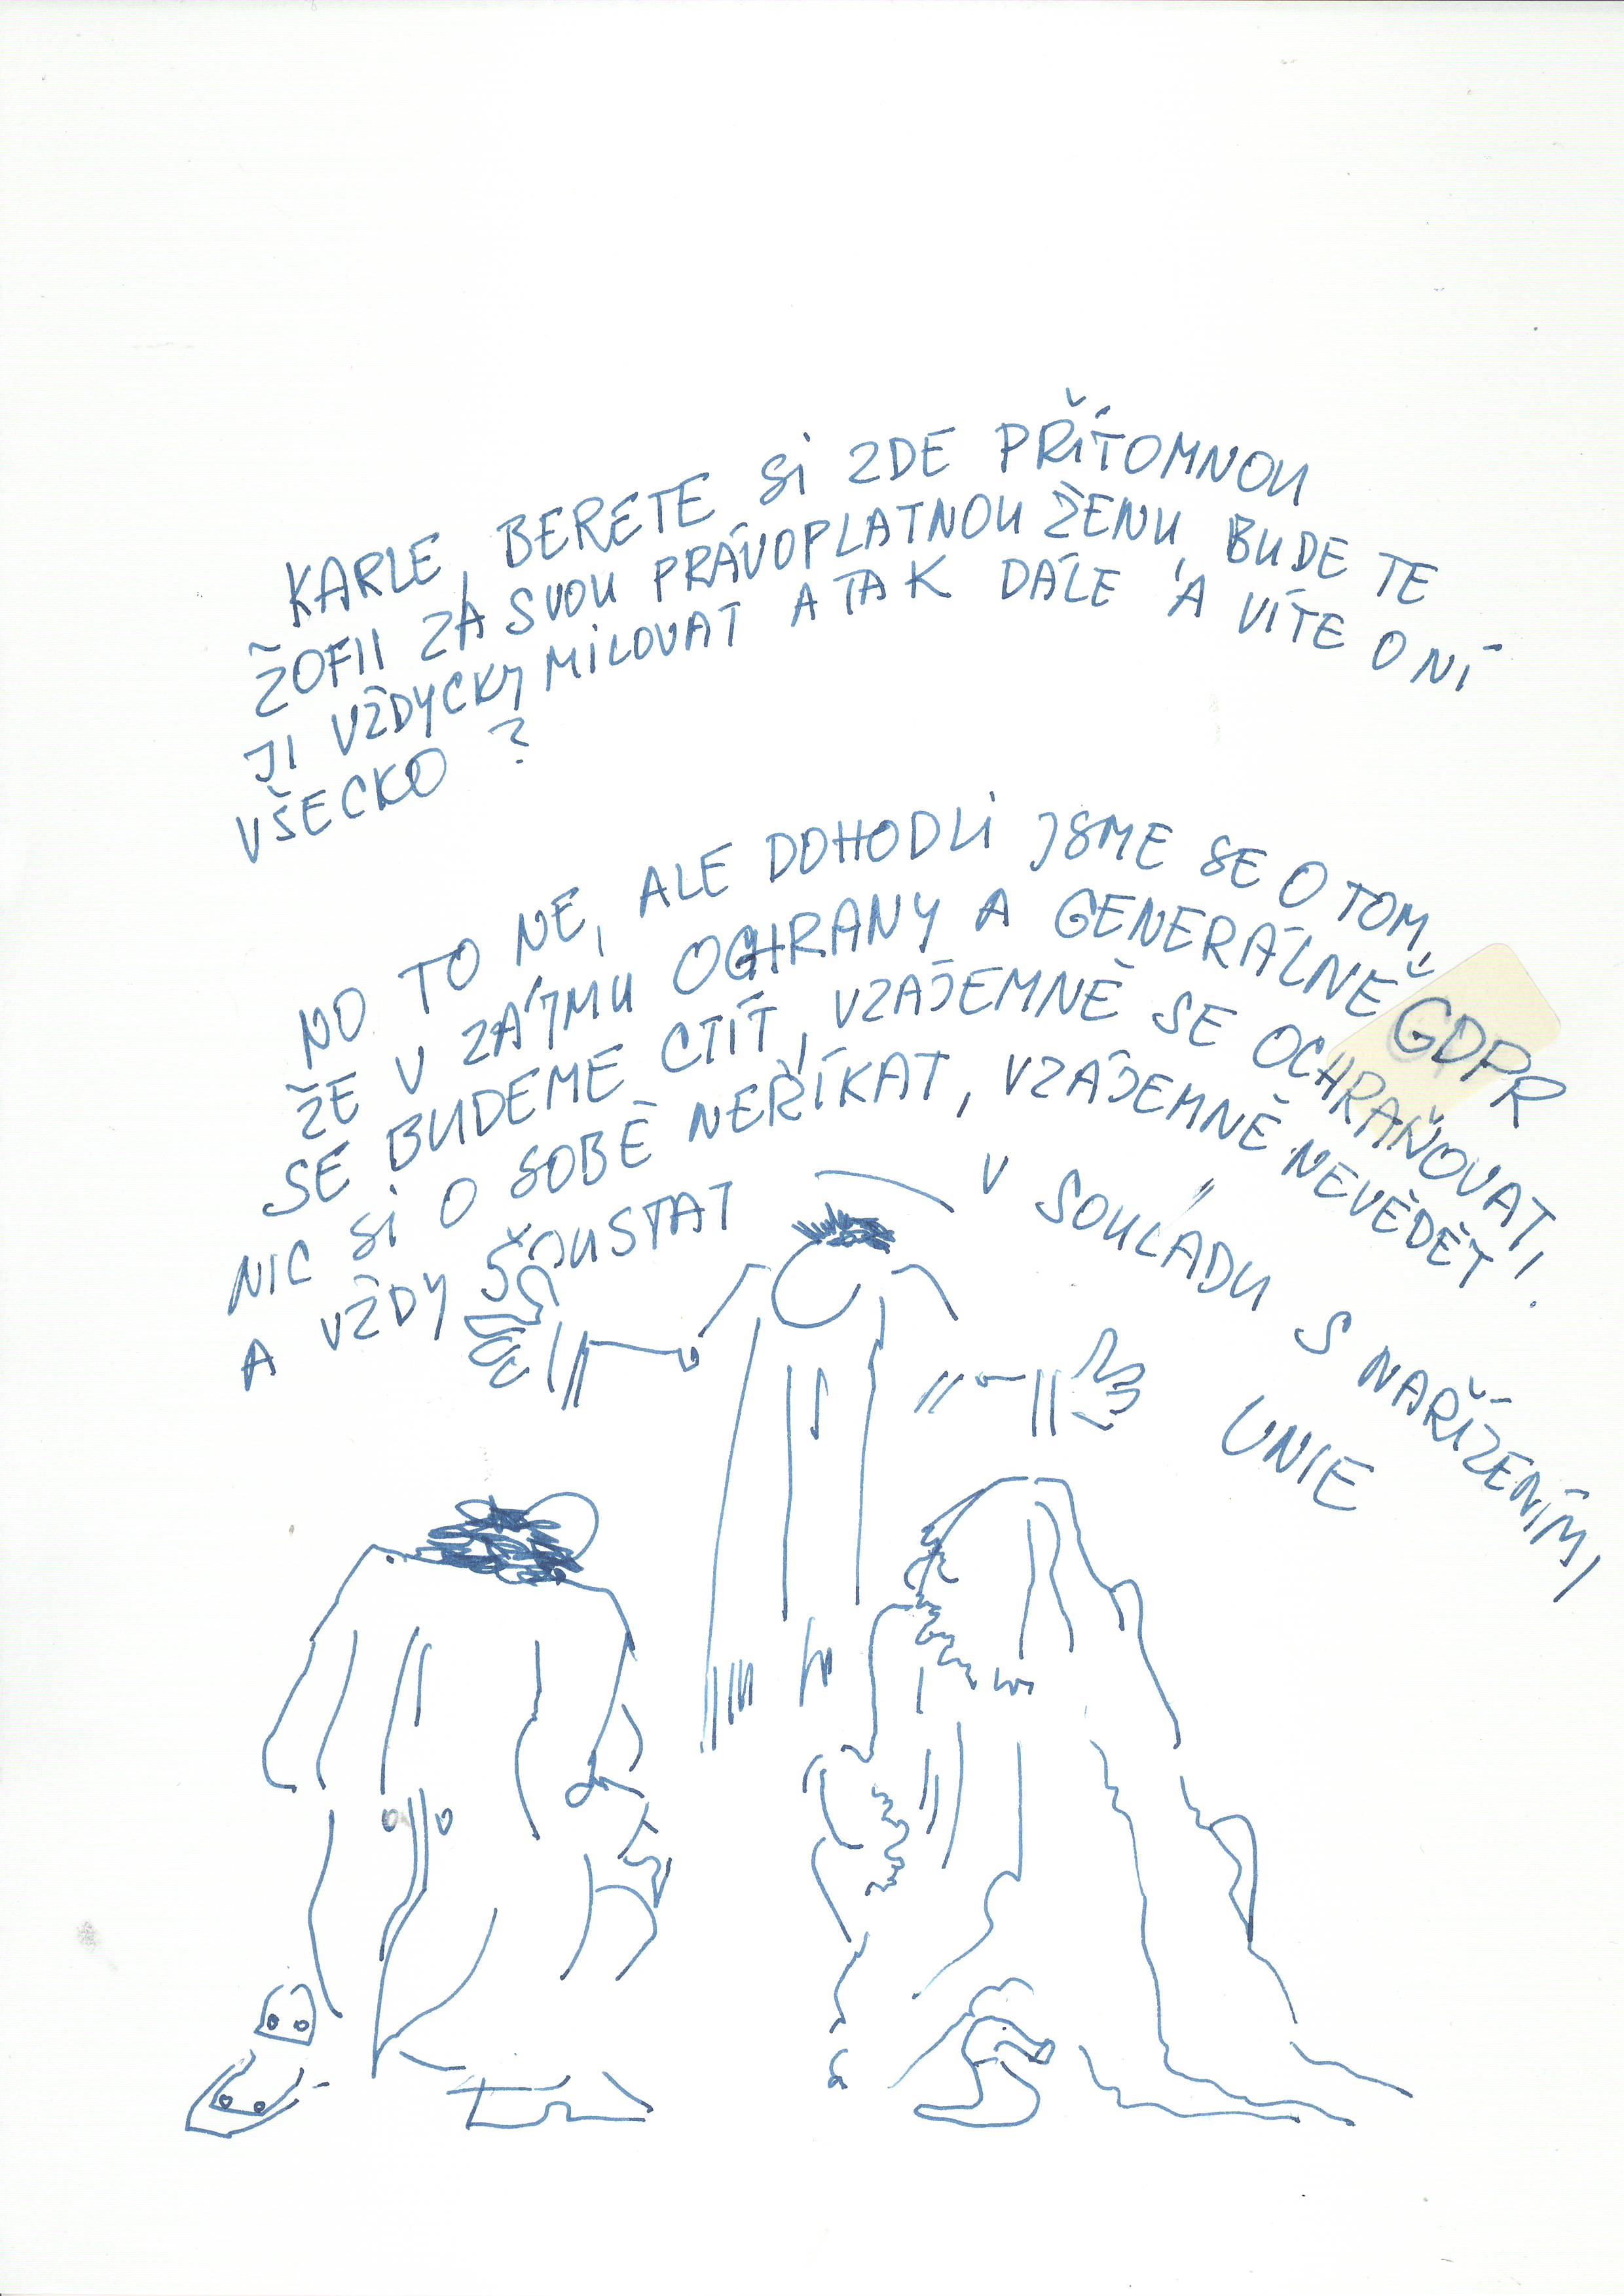 KARLE, BERETE SI ZDE PŘÍTOMNOU
ŽOFII ZA SVOU PRÁVOPLATNOU ŽENU, BUDE TE
JI VŽDYCKY MILOVAT A TAK DÁLE A VÍTE O NÍ
VŠECKO ?
NO TO NE, ALE DOHODLI JSME SE O TOM,
ŽE V ZÁJMU OCHRANY A GENERÁLNĚ GDPR
SE BUDEME CTÍT, VZÁJEMNĚ SE OCHRAŇOVAT,
NIC SI O SOBĚ NEŘÍKAT, VZÁJEMNĚ NEVĚDĚT
A VŽDY ŠOUSTAT V SOULADU S NAŘÍZENÍM,
UNIE